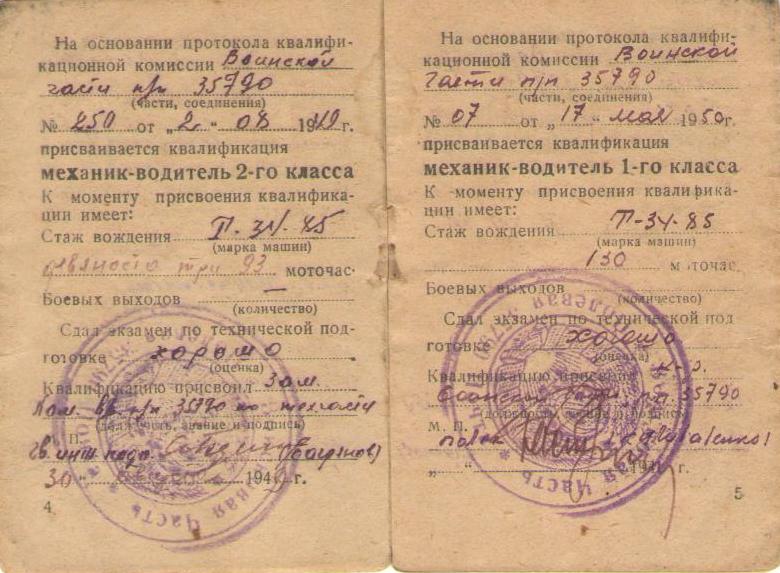 На основании протокола квалифи-
кационной комиссии Воинской
части п/п 35790
(части, соединения)
№ 250 от „2“ 08 1949 г.
присваивается квалификация
механик-водитель 2-го класса
К моменту присвоения квалифика-
ции имеет:
Стаж вождения Т-34-85
(марка машин)
девяносто три 93 моточас
Боевых выходов —
(количество)
Сдал экзамен по технической под-
готовке хорошо
(оценка)
Квалификацию присвоил Зам.
п/п 35790 по техчасти
(должность, звание и подпись)
П.
30 194 г.
4
На основании протокола квалифи-
кационной комиссии Воинской
Части п/п 35790
(части, соединения)
№ 07 от „17“ мая 1950 г.
присваивается квалификация
механик-водитель 1-го класса
К моменту присвоения квалифика-
ции имеет:
Стаж вождения Т-34-85
(марка машин)
130 моточас.
Боевых выходов
(количество)
Сдал экзамен по технической под
готовке хорошо
(оценка)
Квалификацию присвоил
п/п 35790
(должность, звание и подпись)
М. П.
„ “ 194 г.
5